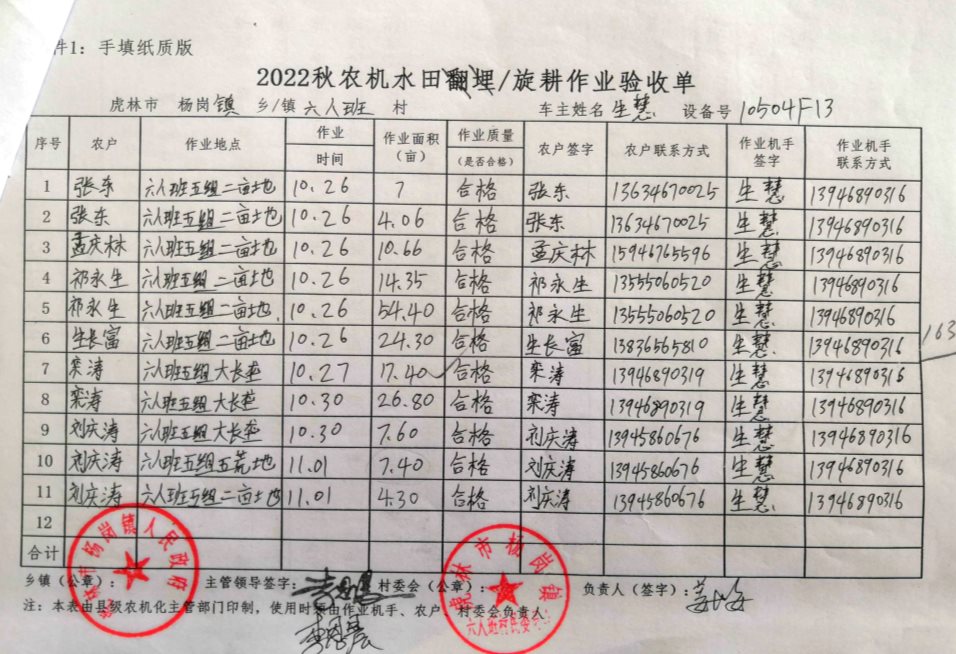 件1：手填纸质版
2022秋农机水田翻埋/旋耕作业验收单
虎林市 杨岗镇 乡/镇 六人班 村 车主姓名 生慧 设备号 10504F13
序号 农户 作业地点 作业时间 作业面积（亩） 作业质量（是否合格） 农户签字 农户联系方式 作业机手签字 作业机手联系方式
1 张东 六人班五组二亩地 10.26 7 合格 张东 13634670025 生慧 13946890316
2 张东 六人班五组二亩地 10.26 4.06 合格 张东 13634670025 生慧 13946890316
3 孟庆林 六人班五组二亩地 10.26 10.66 合格 孟庆林 15946765596 生慧 13946890316
4 祁永生 六人班五组二亩地 10.26 14.35 合格 祁永生 13555060520 生慧 13946890316
5 祁永生 六人班五组二亩地 10.26 54.40 合格 祁永生 13555060520 生慧 13946890316
6 生长富 六人班五组二亩地 10.26 24.30 合格 生长富 13836565810 生慧 13946890316
163
7 栾涛 六人班五组大长垄 10.27 17.40 合格 栾涛 13946890319 生慧 13946890316
8 栾涛 六人班五组大长垄 10.30 26.80 合格 栾涛 13946890319 生慧 13946890316
9 刘庆涛 六人班五组大长垄 10.30 7.60 合格 刘庆涛 13945860676 生慧 13946890316
10 刘庆涛 六人班五组五荒地 11.01 7.40 合格 刘庆涛 13945860676 生慧 13946890316
11 刘庆涛 六人班五组二亩地 11.01 4.30 合格 刘庆涛 13945860676 生慧 13946890316
12
合计
乡镇（公章）： 主管领导签字： 村委会（公章）： 负责人（签字）：
注：本表由县级农机化主管部门印制，使用时须由作业机手、农户、村委会负责人
杨岗镇人民政府
虎林市杨岗镇
六人班村民委